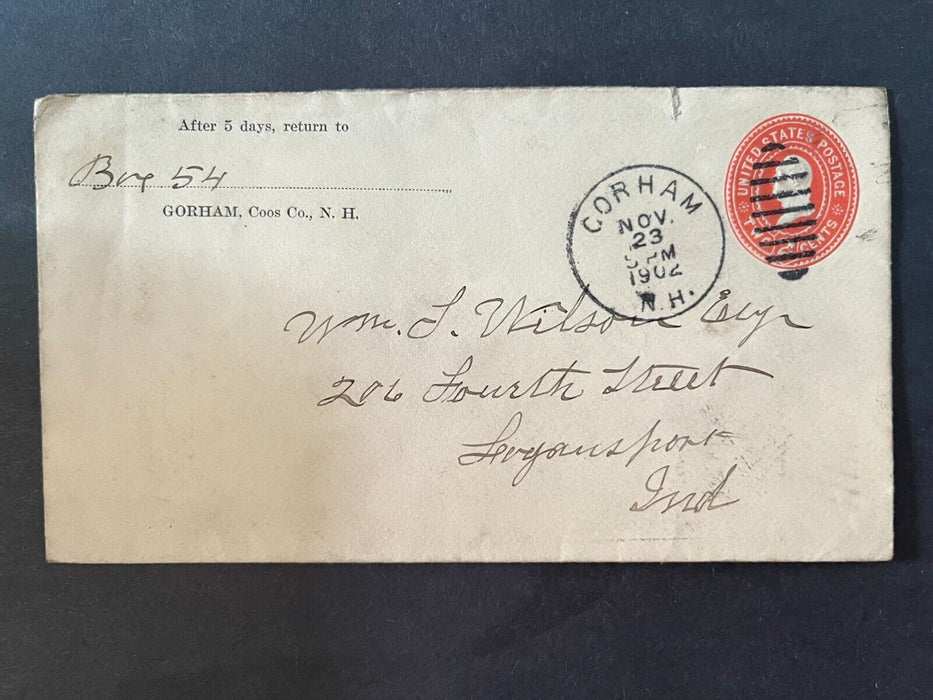 After 5 days, return to
Box 54
GORHAM, Coos Co., N. H.
GORHAM
NOV.
23
PM
1902
N.H.
UNITED STATES POSTAGE
TWO CENTS
Wm. S. Wilson Esqr
206 Fourth Street
Logansport
Ind